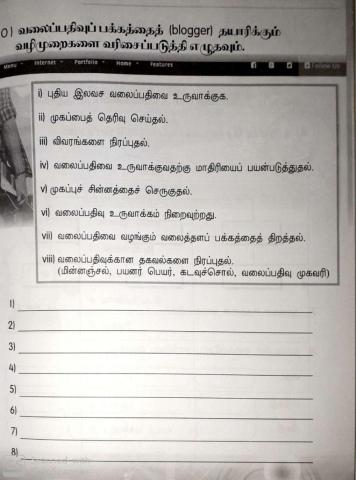 0) வலைப்பதிவுப் பக்கத்தைத் (blogger) தயாரிக்கும்
வழிமுறைகளை வரிசைப்படுத்தி எழுதவும்.
Menu Internet Portfolio Home Features Follow Us
i) புதிய இலவச வலைப்பதிவை உருவாக்குக.
ii) முகப்பைத் தெரிவு செய்தல்.
iii) விவரங்களை நிரப்புதல்.
iv) வலைப்பதிவை உருவாக்குவதற்கு மாதிரியைப் பயன்படுத்துதல்.
v) முகப்புச் சின்னத்தைச் செருகுதல்.
vi) வலைப்பதிவு உருவாக்கம் நிறைவுற்றது.
vii) வலைப்பதிவை வழங்கும் வலைத்தளப் பக்கத்தைத் திறத்தல்.
viii) வலைப்பதிவுக்கான தகவல்களை நிரப்புதல்.
(மின்னஞ்சல், பயனர் பெயர், கடவுச்சொல், வலைப்பதிவு முகவரி)
1)
2)
3)
4)
5)
6)
7)
8)